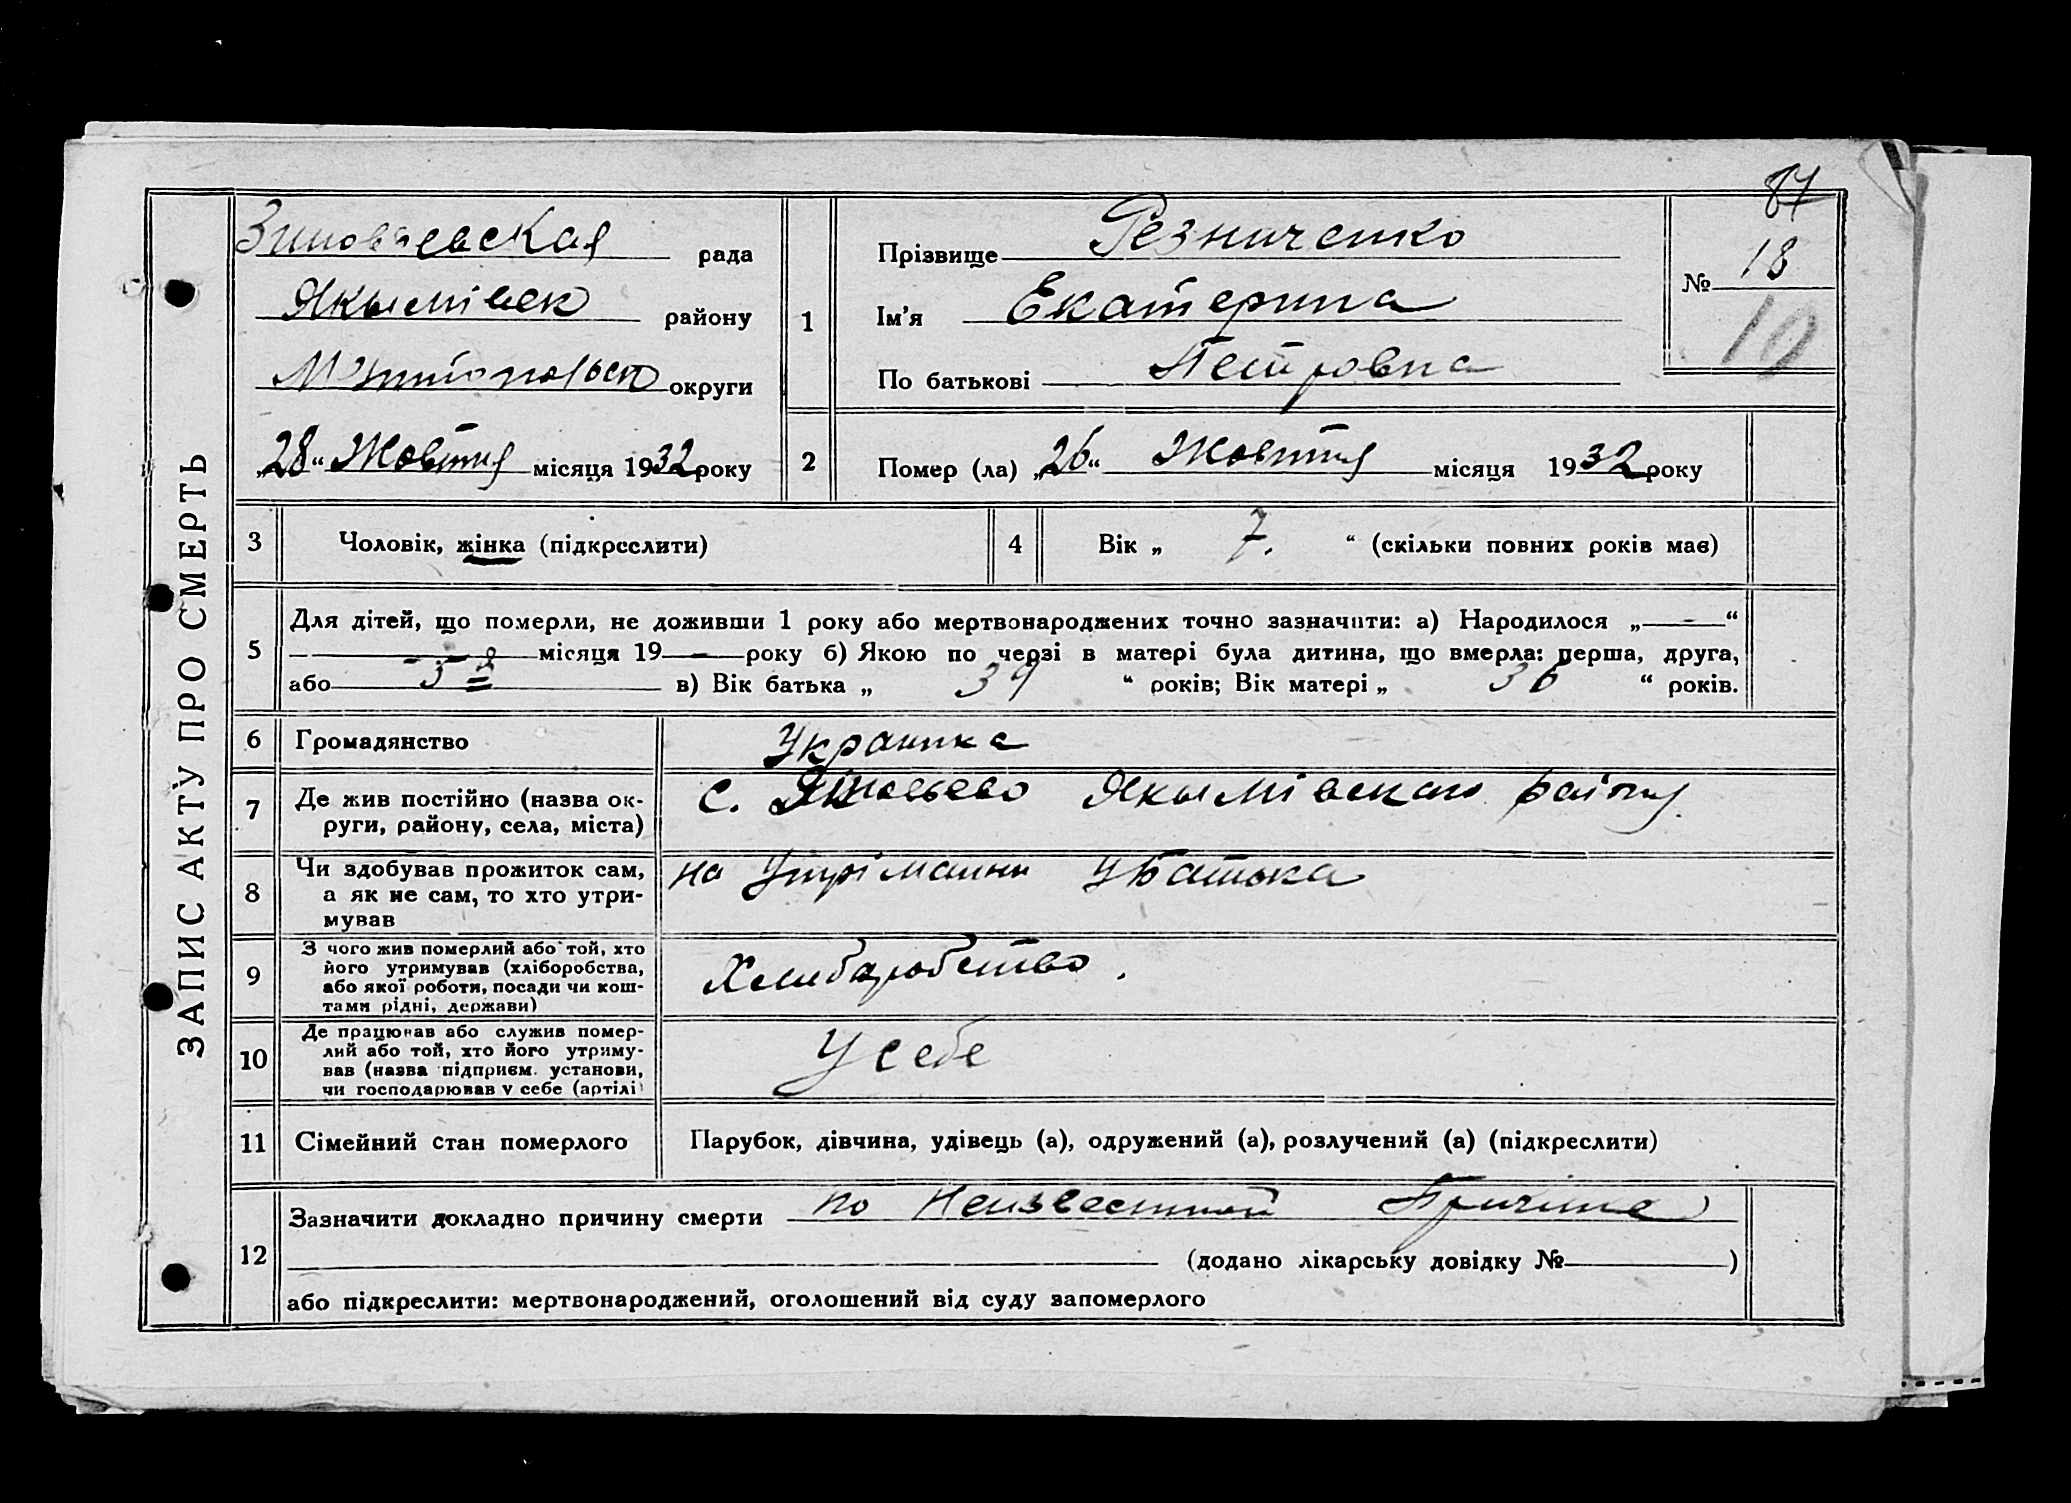 ЗАПИС АКТУ ПРО СМЕРТЬ
87
Зиновьевская рада
Якымівськ району
Мелітопольськ округи
„28“ Жовтня місяця 1932 року
1
Прізвище Резниченко
Ім'я Екатерина
По батькові Петровна
№ 18
19
2
Помер (ла) „26“ Жовтня місяця 1932 року
3
Чоловік, жінка (підкреслити)
4
Вік „ 7. “ (скільки повних років має)
5
Для дітей, що померли, не доживши 1 року або мертвонароджених точно зазначити: а) Народилося „—“
— місяця 19— року б) Якою по черзі в матері була дитина, що вмерла: перша, друга,
або 5 я в) Вік батька „ 39 “ років; Вік матері „ 36 “ років.
6
Громадянство
Украинка
7
Де жив постійно (назва ок-
руги, району, села, міста)
с. Якымівскаго району.
8
Чи здобував прожиток сам,
а як не сам, то хто утри-
мував
на Утріманни У Батька
9
З чого жив померлий або той, хто
його утримував (хліборобства,
або якої роботи, посади чи кош-
тами рідні, держави)
Хлибаробство.
10
Де працював або служив помер-
лий або той, хто його утриму-
вав (назва підприєм. установи,
чи господарював у себе (артілі)
У себе
11
Сімейний стан померлого
Парубок, дівчина, удівець (а), одружений (а), розлучений (а) (підкреслити)
12
Зазначити докладно причину смерти по Неизвестной Причине
(додано лікарську довідку № )
або підкреслити: мертвонароджений, оголошений від суду запомерлого